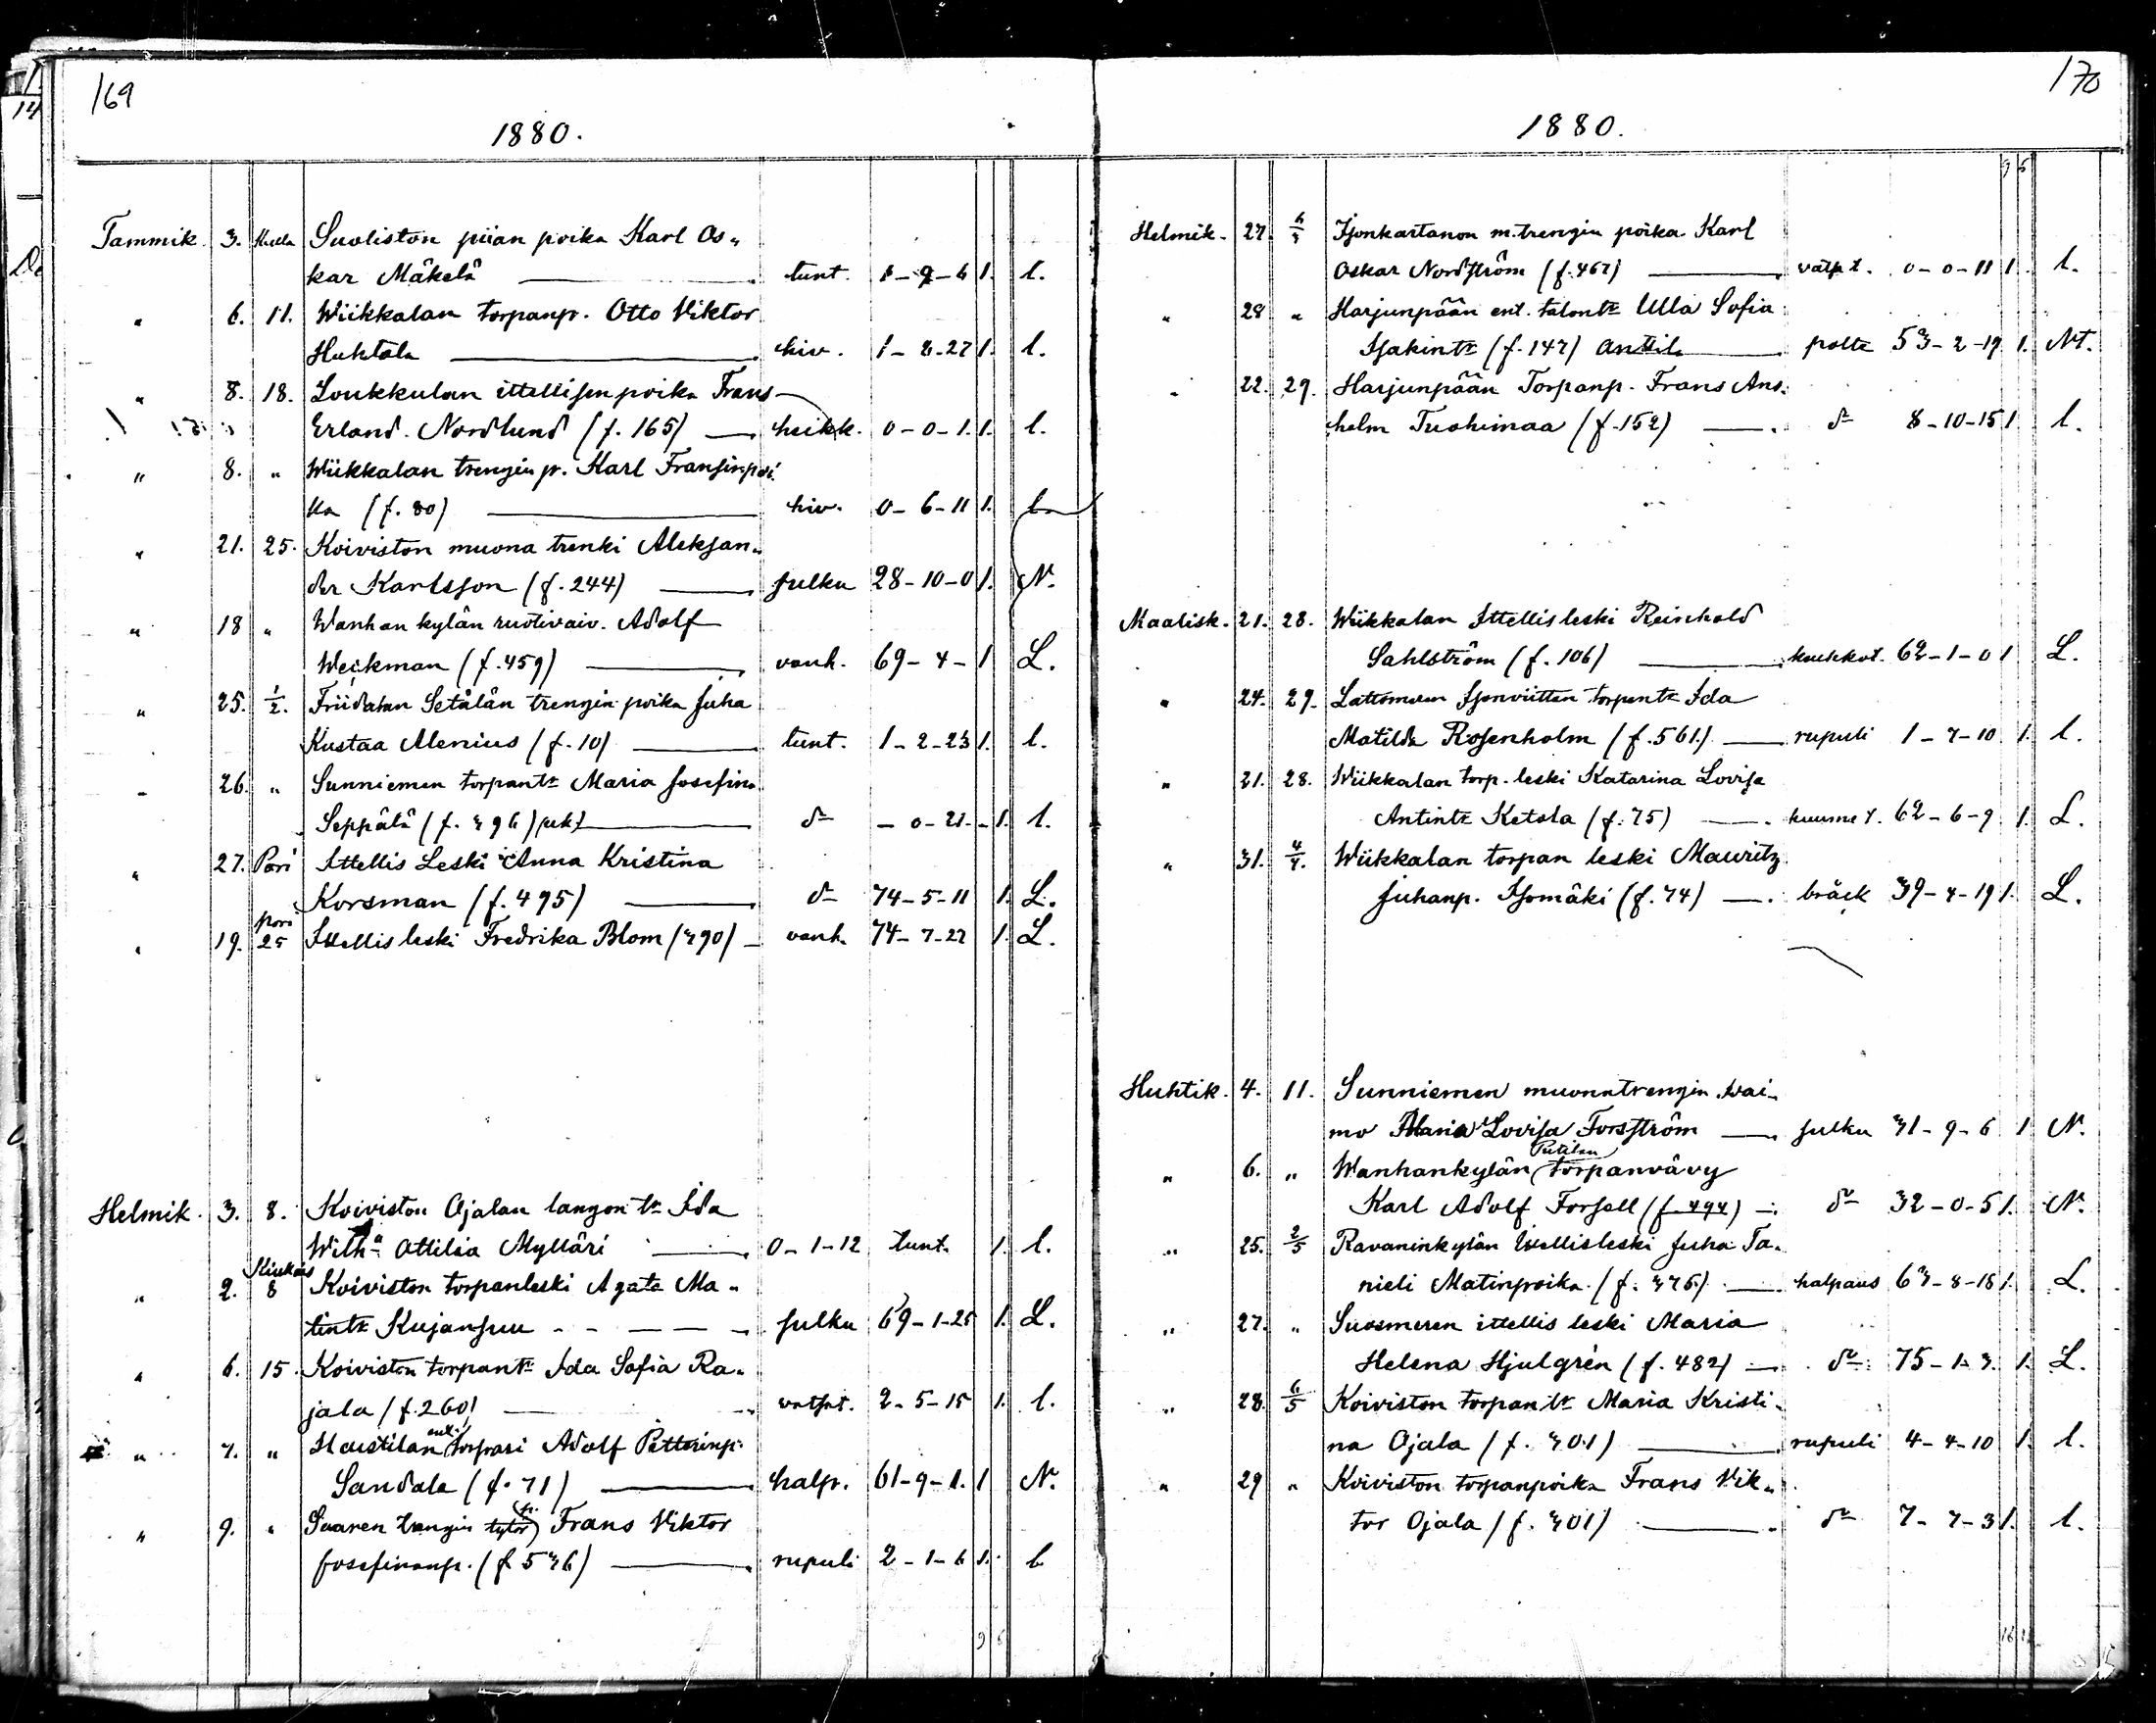 169
1880.
Tammik. 3. Kulla Suoliston piian poika Karl Os„
kar Mäkelä — tunt. 1-9-6 1. l.
„ 6. 11. Wiikkalan torpanp. Otto Viktor
Huhtala — hiv. 1-8-27 1. l.
„ 8. 18. Loukkulan ittellisen poika Frans
Erland. Nordlund (f. 165) — heikk. 0-0-1. 1. l.
„ 8. „ Wiikkalan trengin p. Karl Fransinpoi
ka (f. 80) — hiv. 0-6-11 1. l.
„ 21. 25. Koiviston muona trenki Aleksan„
der Karlsson (f. 244) — Julku 28-10-0 1. N.
„ 18 „ Wanhan kylän ruotivaiv. Adolf
Weikman (f. 459) — vanh. 69-4- 1 L.
„ 25. 1/2. Friidalan Setälän trengin poika Juha
Kustaa Alenius (f. 10) — tunt. 1-2-23 1. l.
„ 26. „ Sunniemen torpantr Maria Josefina
Seppälä (f. 396) — do - 0-21. - 1. l.
„ 27. Pori Ittellis Leski Anna Kristina
Korsman (f. 495) — do 74-5-11 1. L.
„ 19. pori 25 Ittellis leski Fredrika Blom (390) — vanh. 74-7-27 1. L.
Helmik. 3. 8. Koiviston Ojalan langon tr Ida
Wilha Otilia Mylläri — 0-1-12 tunt. 1. l.
„ 2. 8 Koiviston torpanleski Agata Ma„
tintr Kujansuu — Julku 69-1-25 1. L.
„ 6. 15. Koiviston torpantr Ida Sofia Ra„
jala (f. 260) — vatsat. 2-5-15 1. l.
„ 7. „ Haistilan ent. torpari Adolf Pettorinp.
Sandala (f. 71) — halp. 61-9-1. 1 N.
„ 9. „ Saaren trengin tytör p. Frans Viktor
Josefinanp. (f 536) — rupuli 2-1-6 1. l
9 6
170
1880.
9 6
Helmik. 27. 6/3 Isonkartanon m. trengin poika Karl
Oskar Nordström (f. 467) — vatst. 0-0-11 1. l.
„ 28 „ Harjunpään ent. talontr Ulla Sofia
Isakintr (f. 147) Anttila — poltz 53-2-19 1. Nt.
„ 22. 29. Harjunpään Torpanp. Frans Ans:
helm Tuohimaa (f. 152) — do 8-10-15 1 l.
Maalisk. 21. 28. Wiikkalan Ittellis leski Reinhold
Sahlström (f. 106) — keuhkot. 62-1-0 1 L.
„ 24. 29. Lattomeren Isonviitten torpantr Ida
Matilda Rosenholm (f. 561.) — rupuli 1-7-10 1. l.
„ 21. 28. Wiikkalan torp. leski Katarina Lovisa
Antintr Ketola (f. 75) — kuume t. 62-6-9 1. L.
„ 31. 4/4. Wiikkalan torpan leski Mauritz
Juhanp. Isomäki (f. 74) — bråck 39-4-19 1. L.
Huhtik. 4. 11. Sunniemen muonatrengin wai„
mo Maria Lovisa Forsström — Julku 31-9-6 1 N.
„ 6. „ Wanhankylän torpanvävy
Karl Adolf Forsell (f. 494) — do 32-0-5 1. N.
„ 25. 2/5 Ravaninkylän ittellisleski Juha Ta„
nieli Matinpoika. (f. 376) — halpaus 63-8-18 1. L.
„ 27. „ Suosmeren ittellis leski Maria
Helena Hjulgrén (f. 482) — do 75-1-3. 1. L.
„ 28. 6/5 Koiviston torpan tr Maria Kristi„
na Ojala (f. 301) — rupuli 4-4-10 1. l.
„ 29 „ Koiviston torpanpoika Frans Vik„
tor Ojala (f. 301) — do 7-7-3 1. l.